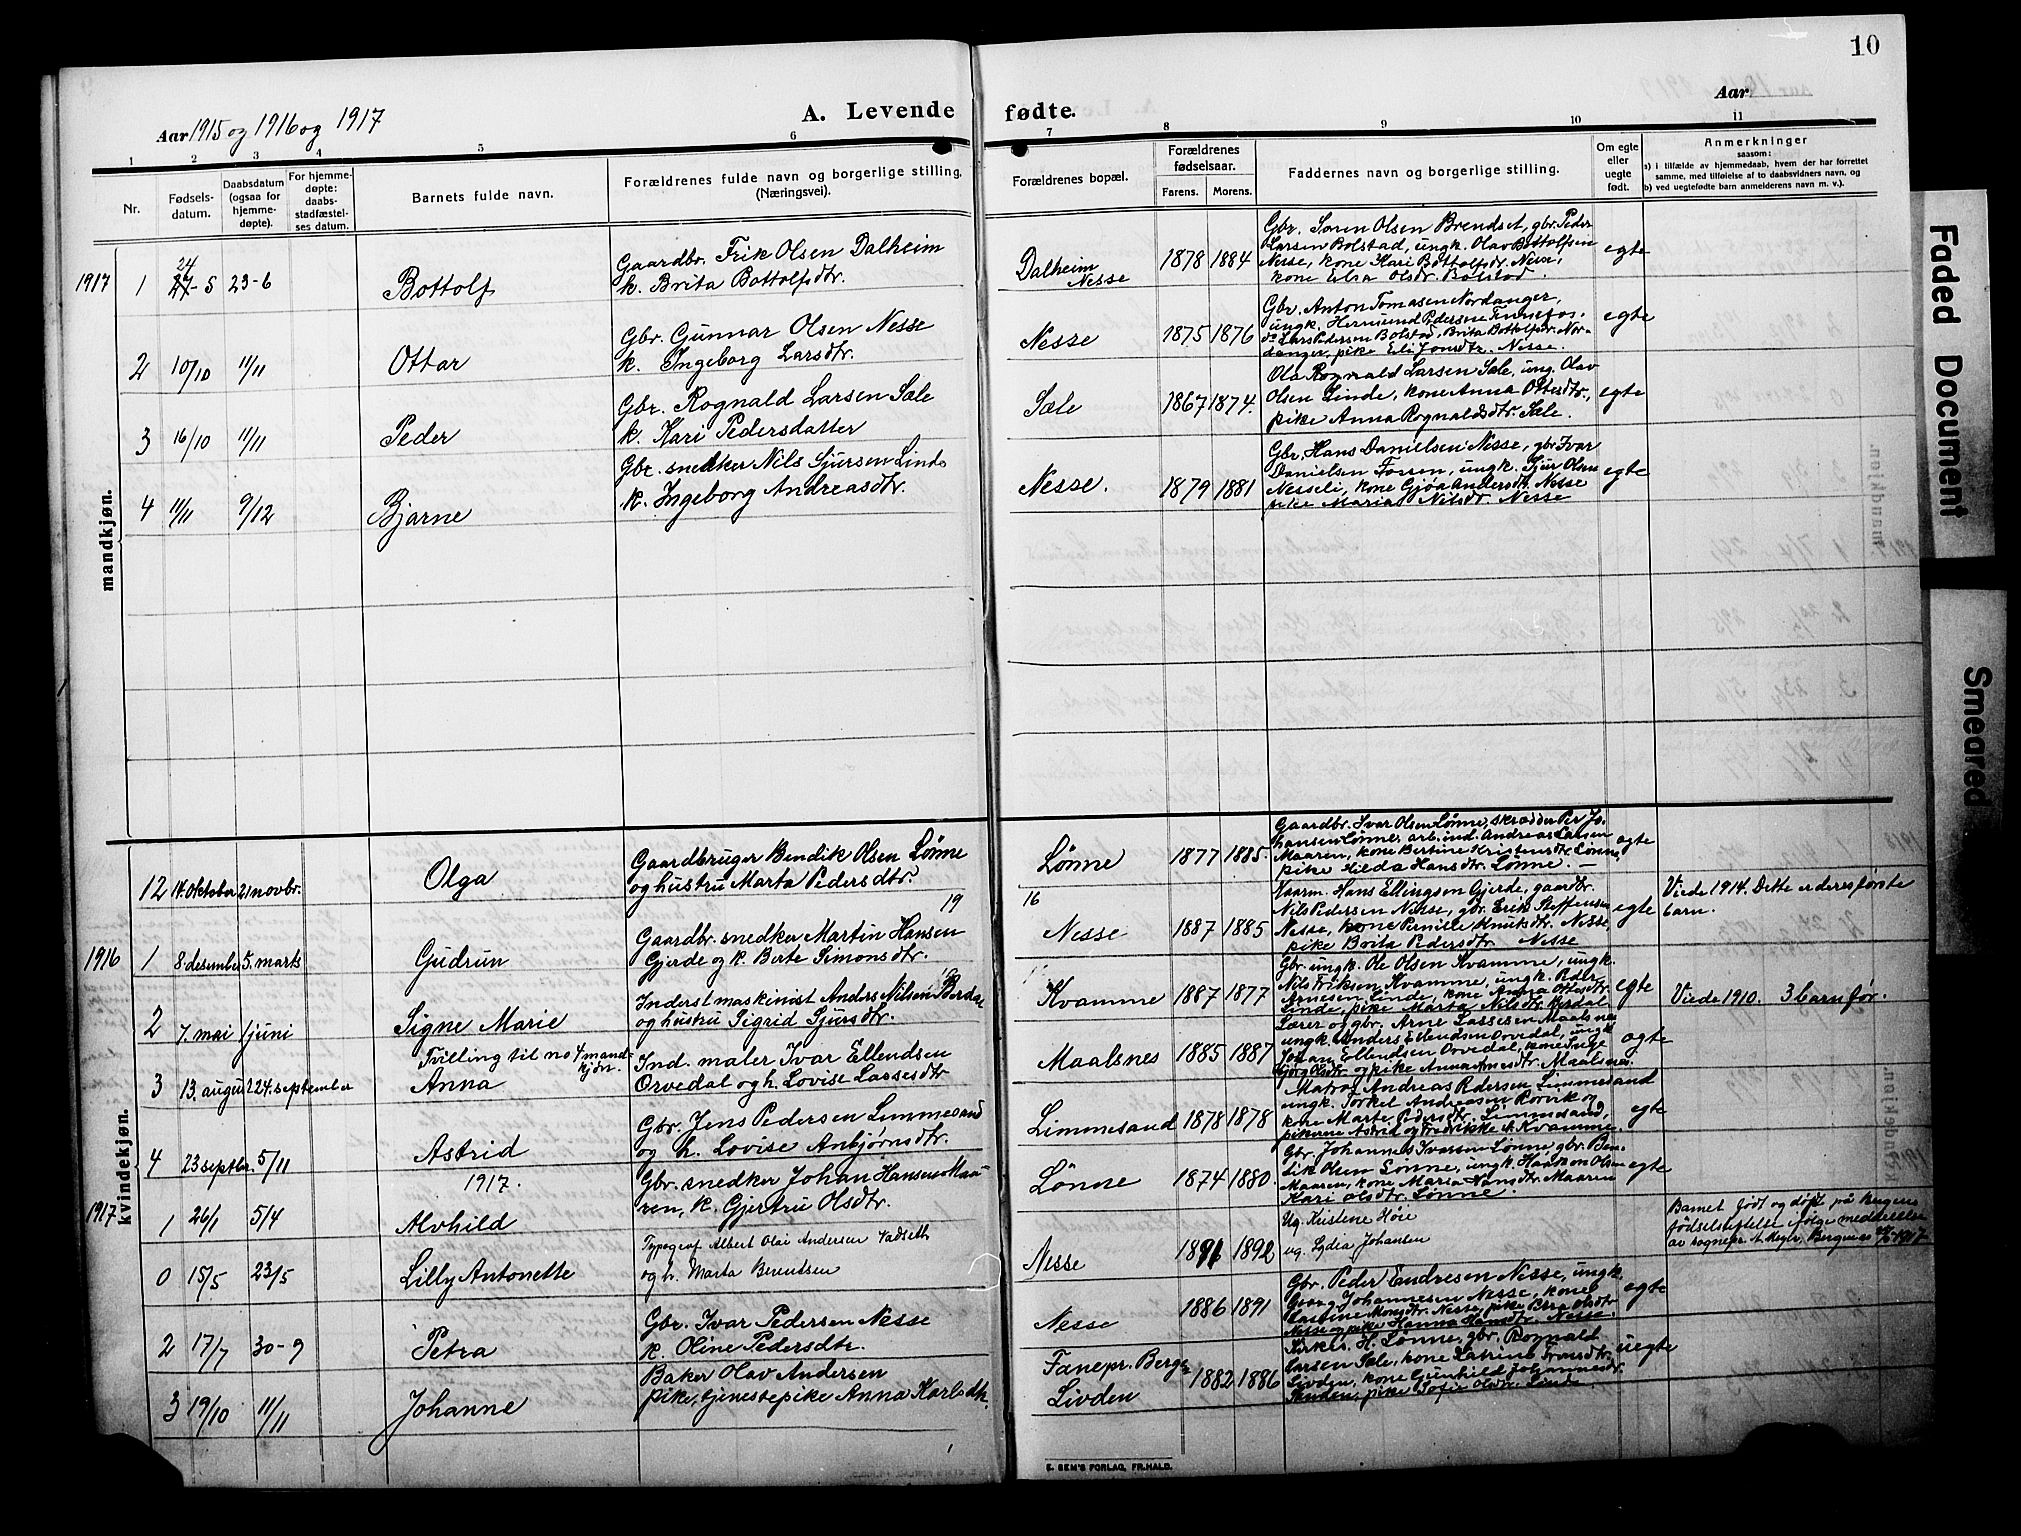 10
Aar 1915 og 1916 og 1917
A. Levende fødte.
Aar
1 2 3 4 5 6 7 8 9 10 11
Nr.
Fødsels-
datum.
Daabsdatum
(ogsaa for
hjemme-
døpte).
For hjemme-
døpte:
daabs-
stadfæstel-
ses datum.
Barnets fulde navn.
Forældrenes fulde navn og borgerlige stilling.
(Næringsvei).
Forældrenes bopæl.
Forældrenes
fødselsaar.
Farens. Morens.
Faddernes navn og borgerlige stilling.
Om egte
eller
uegte
født.
Anmerkninger
saasom:
a) i tilfælde av hjemmedaab, hvem der har forrettet
samme, med tilføielse af to daabsvidners navn, og
b) ved uegtefødte barn anmelderens navn m. v.).
mandkjøn.
1917 1 24 27-5 23-6 Bottolf
Gaardbr. Erik Olsen Dalheim
k. Brita Bottolfsdtr.
Dalheim
Nesse
1878 1884
Gbr. Søren Olsen Brendset, gbr. Peder
Larsen Bolstad, ungk. Olav Bottolfsen
Nesse, kone Kari Bottolfsdr. Nesse,
kone Elsa Olsdr. Bolstad.
egte
2 10/10 11/11 Ottar
Gbr. Gunnar Olsen Nesse
k. Ingeborg Larsdtr.
Nesse
1875 1876
Gbr. Anton Tomasen Nordanger,
ungk. Hermund Pedersen
do Lars Pedersen Bolstad, Brita Bottolfsdr. Nor-
danger, pike Eli Jonsdtr. Nesse.
egte
3 16/10 11/11 Peder
Gbr. Rognald Larsen Sæle
k. Kari Pedersdatter
Sæle
1867 1874.
Ola Rognald Larsen Sæle, ung. Olav
Olsen Linde, kone Anna Ottesdtr.,
pike Anna Rognaldsdtr. Sæle.
egte
4 11/11 9/12 Bjarne
Gbr. snedker Nils Sjursen Linde
k. Ingeborg Andreasdtr.
Nesse.
1879 1881
Gbr. Hans Danielsen Nesse, gbr. Ivar
Danielsen Fossen, ungk. Sjur Olsen
Nesseli, kone Gjøa Andersdt. Nesse
pike Maria Nilsdtr. Nesse
egte
kvindekjøn.
12 14. oktober 21 novbr. Olga
Gaardbruger Bendik Olsen Lønne
og hustru Marta Pedersdtr.
Lønne
1877 1885.
Gaardbr. Ivar Olsen Lønne, skrædder Per Jo-
hansen Lønne, arb. ind. Andreas Larsen
Maaren, kone Bertine Kristensdtr. Lønne,
pike Hilda Hansdtr. Lønne. —
egte
19 16
1916 1 8. desember 5. marts Gudrun
Gaardbr. snedker Martin Hansen
Gjerde og k. Berte Simonsdtr.
Nesse
1887 1885
Naarm. Hans Ellingsen Gjerde, gaardbr.
Nils Pedersen Nesse, gbr. Erik Steffensen
Nesse, kone Pernille Knutsdtr. Nesse,
pike Brita Pedersdtr. Nesse
egte
Viede 1914. Dette er deres første
barn.
2 7. mai 1 juni Signe Marie
Inderst maskinist Anders Nilsen Berdal
og hustru Sigrid Sjursdtr.
Kvamme
1887 1877
Gbr. ungk. Ole Olsen Kvamme, ungk.
Nils Eriksen Kvamme, ungk. Peder
Arnesen Linde, kone Anna Ottesdtr.
Linde, pike Marta Nilsdtr. Berdal
egte
Viede 1910. 3 barn før.
3 13. august 24. september
Tvilling til no 4 mand-
kjøn.
Anna
Ind. maler Ivar Ellendsen
Orvedal og h. Lovise Lassesdtr
Maalsnes
1885 1887
Lærer og gbr. Arne Lassesen Maalsnes
ungk. Anders Ellendsen Orvedal, ungk.
Johan Ellendsen Orvedal, kone Inge
bjørg Olsdtr. og pike Anna Arnesdtr. Maalsnes.
egte
4 23 septbr. 5/11 Astrid
Gbr. Jens Pedersen Limmesand
og h. Lovise Anbjørnsdtr.
Limmesand
1878 1878
Matros Andreas Pedersen Limmesand
ungk. Torkel Andreasen Rørvik og
kone Marte Pedersdtr. Limmesand,
pikerne Astrid og Fredrikke A. Kvamme.
egte
1917.
1917 1 26/1 5/4 Alvhild
Gbr. snedker Johan Hansen Maa-
ren, k. Gjertru Olsdtr.
Lønne
1874 1880.
Gbr. Johannes Ivarsen Lønne, gbr. Ben-
dik Olsen Lønne, ungk. Haakon Olsen
Maaren, kone Maria Hansdtr. Maaren
Kari Olsdtr. Lønne.
egte
0 15/5 23/5 Lilly Antonette
Typograf Albert Olai Andersen Vadseth
og h. Marta Berentsen
Nesse
1891 1892
Ug. Kristene Høie
ug. Lydia Johansen
Barnet født og døpt på Bergens
fødselsstiftelse ifølge meddelelse
av sognepr. A. Meyer, Bergen 1917.
2 17/7 30-9 Petra
Gbr. Ivar Pedersen Nesse
k. Oline Pedersdtr.
Nesse
1886 1891
Gbr. Peder Endresen Nesse, ungk.
Georg Johannesen Nesse, kone
Larsine Monsdtr. Nesse, pike Brra Olsdtr
Nesse og pike Hanna Hansdtr. Nesse.
egte
3 19/10 11/11 Johanne
Baker Olav Andersen
pike, tjenestepike Anna Karlsdtr.
Fanepr. Bergen
Livden
1882 1886
Kirkes. H. Lønne, gbr. Rognald
Larsen Sæle, kone Katrine Tronsdtr.
Livden, kone Gunhild Johannesdr.
Linden, pike Sofie Olsdr. Linde.
uegte
E. SEM'S FORLAG, FR.HALD.
Faded Document
Smeared